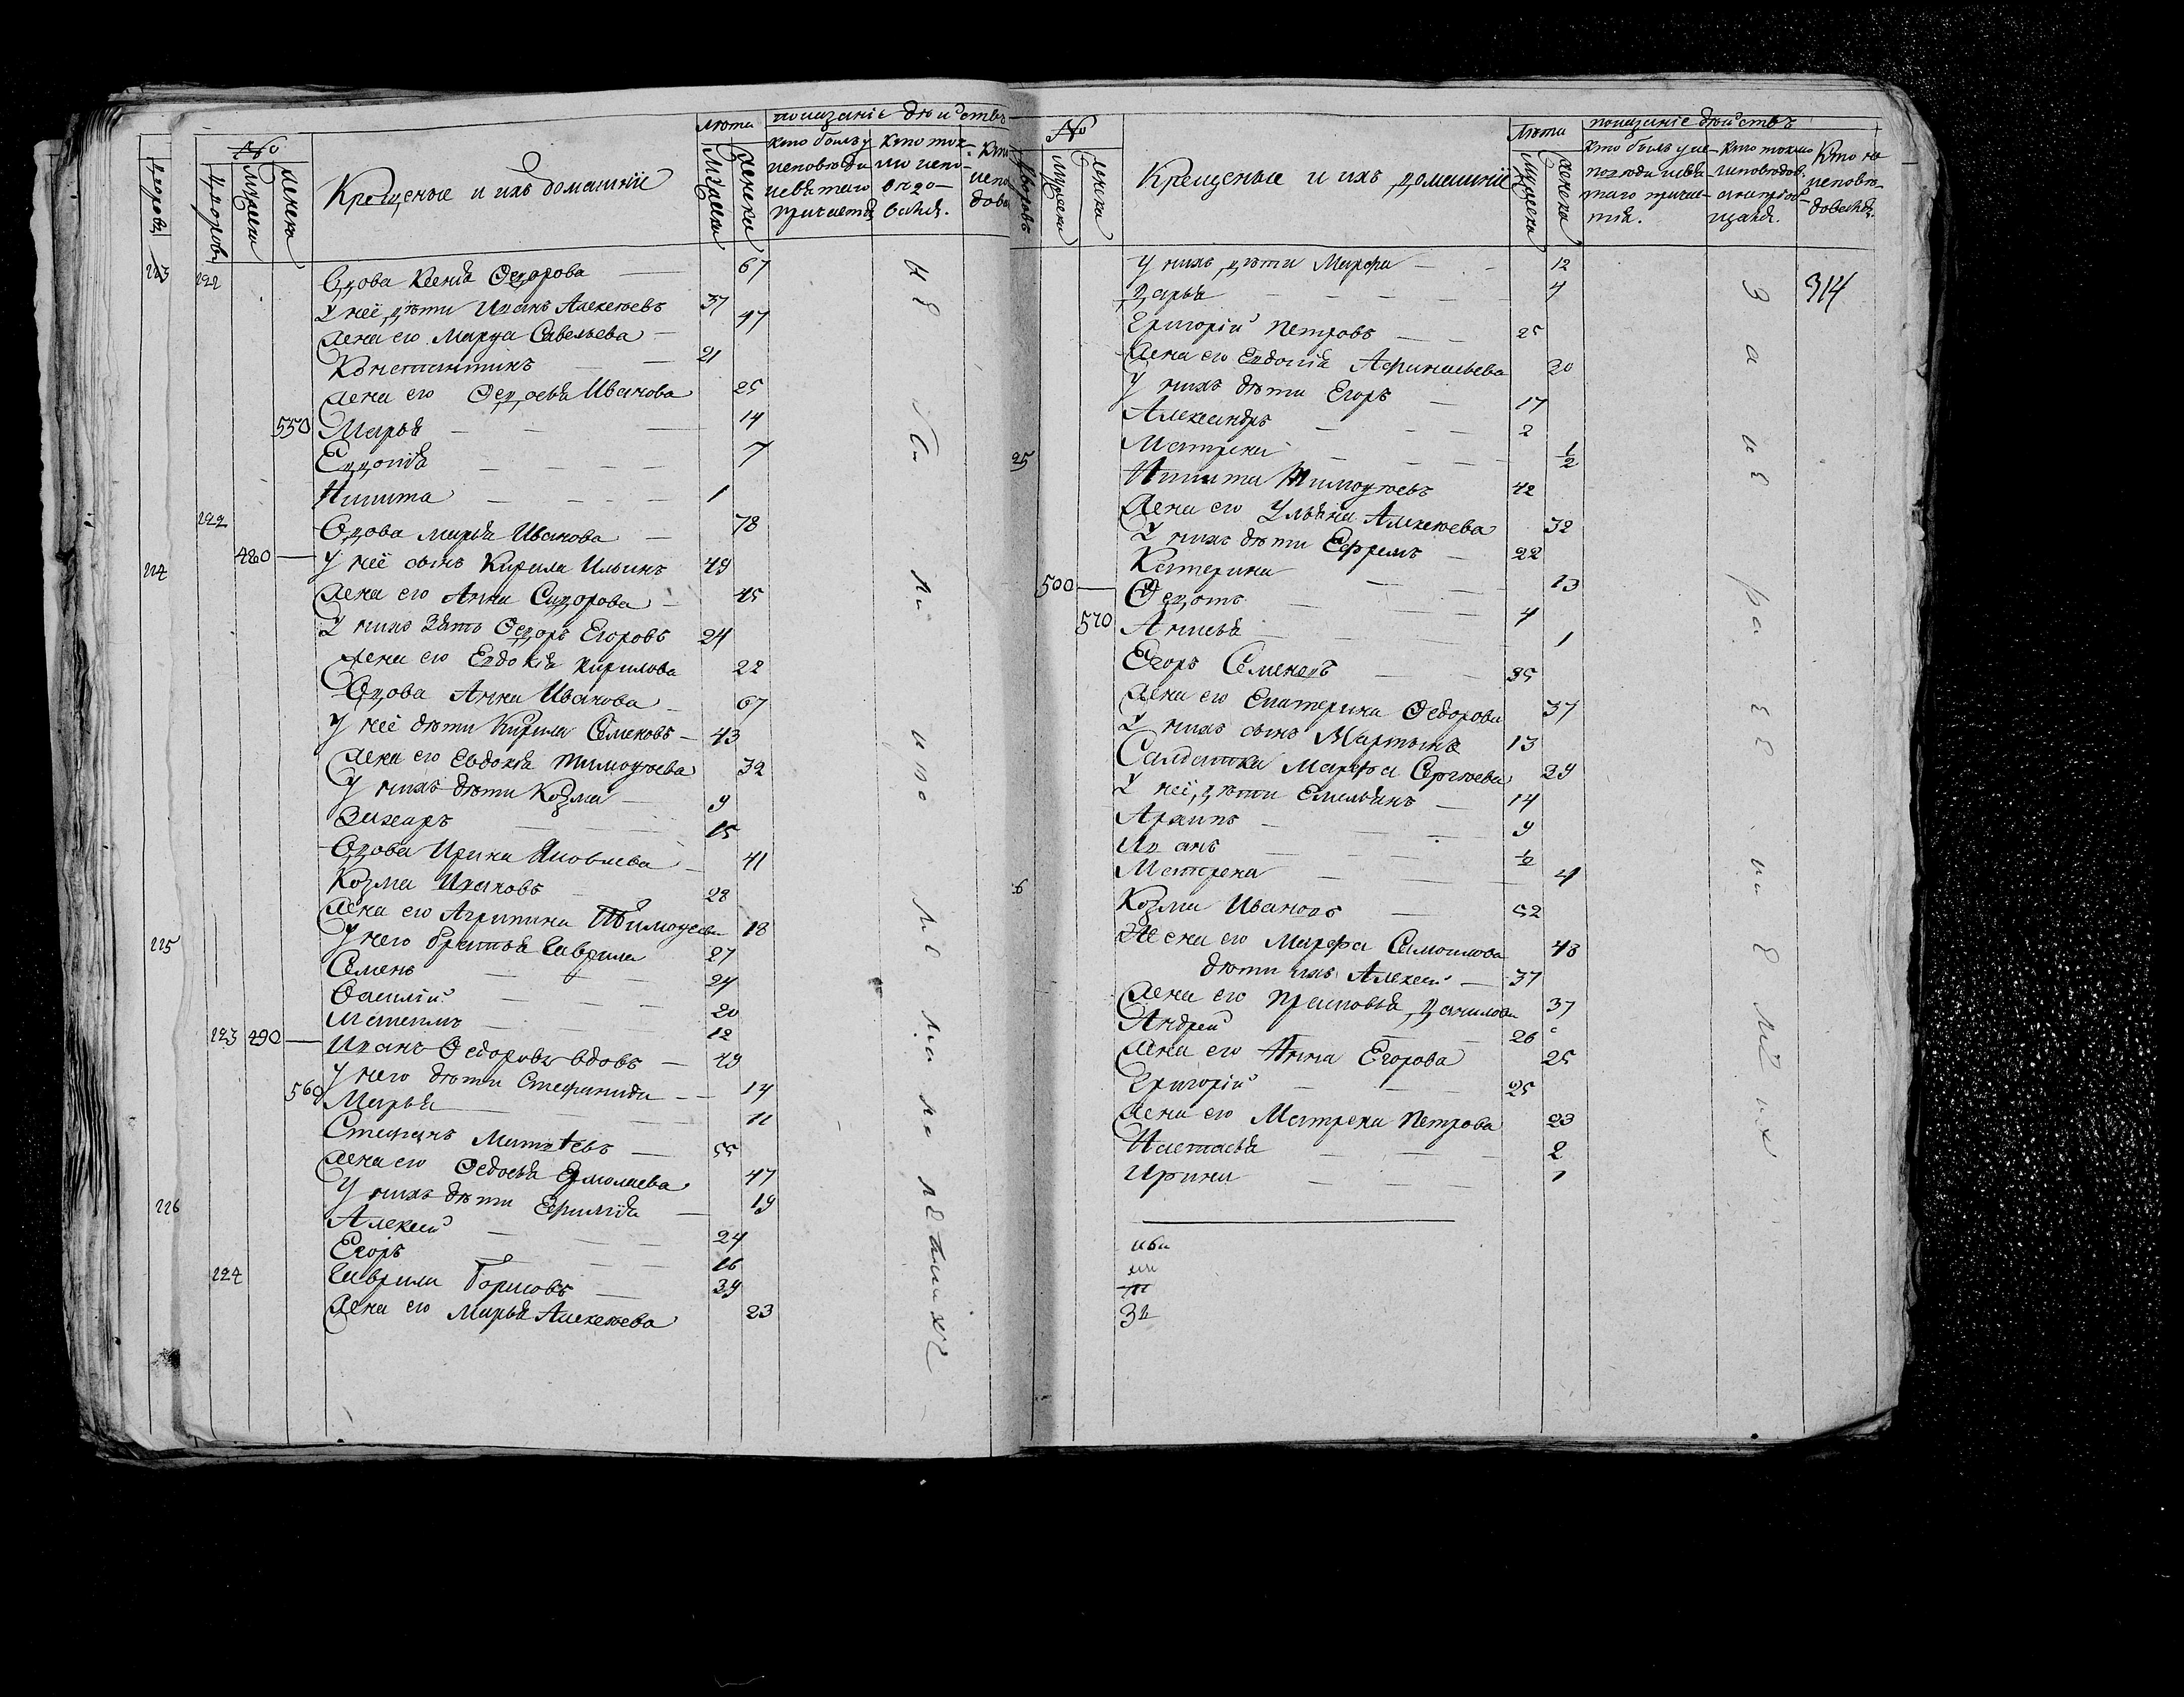 №
Лѣта
показаніе дѣйствъ
дворовъ
мужска
женска
Крещеные и ихъ домашніе
мужска
женска
кто былъ у
исповѣди
исвятаго
причастія
Кто ток-
мо испо-
вѣдо-
вался.
Кто
испо
дова
223 222 Вдова Ксенія Ѳедорова — 67
У неё дѣти Иванъ Алексѣевъ 37
Жена его Марѳа Савельева — 47
Константинъ — 21
Жена его Ѳедосья Иванова 25
550 Марья — 14
Евдокія — 7
Никита — 1
222 Вдова марья Иванова — 78
224 480 — У неё сынъ Кирила Ильинъ 49
Жена его Анна Сидорова — 45
У нихъ Зять Ѳедоръ Егоровъ 24
Жена его Евдокія Кирилова 22
Вдова Анна Иванова — 67
У неё дѣти Кирила Семеновъ — 43
Жена его Евдокія Тимоѳѣева 32
У нихъ дѣти Козма — 9
Захаръ — 15
Вдова Ирина Яковлева — 41
Козма Ивановъ — 28
Жена его Агрипина Тимоѳеева 18
225 У него братья Гаврила 27
Семенъ — 24
Василій — 20
223 490 — Иванъ Ѳедоровъ вдовъ — 49
У него дѣти Стефанида — 14
560 Марья — 11
Стефанъ Матвѣевъ — 55
Жена его Ѳедосья Ермолаева 47
226 У нихъ дѣти Ефимія — 19
Алексей — 24
Егоръ — 16
224 Гаврила Борисовъ — 39
Жена его Марья Алексѣева 23
№
Лѣта
показаніе дѣйствъ
дворовъ
мужска
женска
Крещеные и ихъ домашніе
мужска
женска
Кто былъ уис-
повѣди исвя-
таго причас-
тія.
Кто токмо
исповѣдов.
анепріо-
щался.
Кто не
исповѣ-
довался.
314
У нихъ дѣти Марфа — 12
Дарья — 4
Григорій Петровъ — 25
Жена его Евдокія Афанасьева 20
У нихъ дѣти Егоръ — 17
Александръ — 2
225 Матрена — 1/2
Никита Тимоѳѣевъ 42
Жена его Ульяна Алексѣева 32
У нихъ дѣти Ефремъ — 22
Катерина — 13
500 — Ѳедотъ — 4
570 Анисья — 1
Егоръ Семеновъ — 35
Жена его Екатерина Ѳедорова 37
У нихъ сынъ Мартынъ 13
Салдатка Марѳа Сергѣева 29
У неё дѣти Емельянъ — 14
Архипъ — 9
Иванъ — 1/2
Матрена — 4
6 Козма Ивановъ — 52
Жена его Марфа Самоилова 48
дѣти ихъ Алексей — 37
Жена его Прасковья Данилова 37
Андрей — 26
Жена его Анна Егорова 25
Григорій — 25
Жена его Матрена Петрова 23
Настасья — 2
Ирина — 1